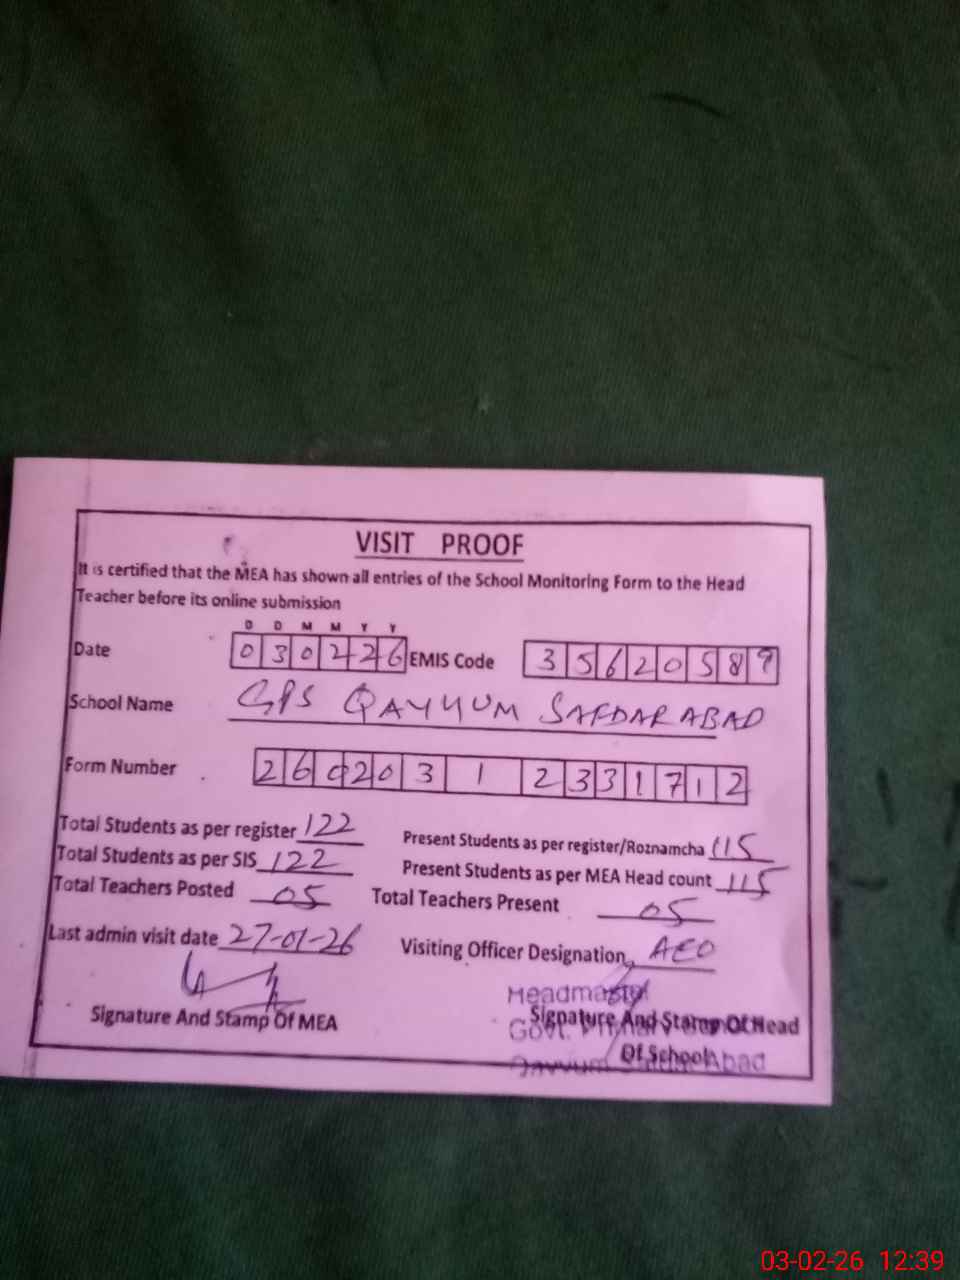 VISIT PROOF
It is certified that the MEA has shown all entries of the School Monitoring Form to the Head
Teacher before its online submission
D D M M Y Y
Date 030226 EMIS Code 35620589
School Name GPS QAYYUM SAFDARABAD
Form Number 26020312331712
Total Students as per register 122 Present Students as per register/Roznamcha 115
Total Students as per SIS 122 Present Students as per MEA Head count 115
Total Teachers Posted 05 Total Teachers Present 05
Last admin visit date 27-01-26 Visiting Officer Designation AEO
Headmaster
Signature And Stamp Of MEA Signature And Stamp Of Head
Govt.
Of School
Qayyum Abad
03-02-26 12:39